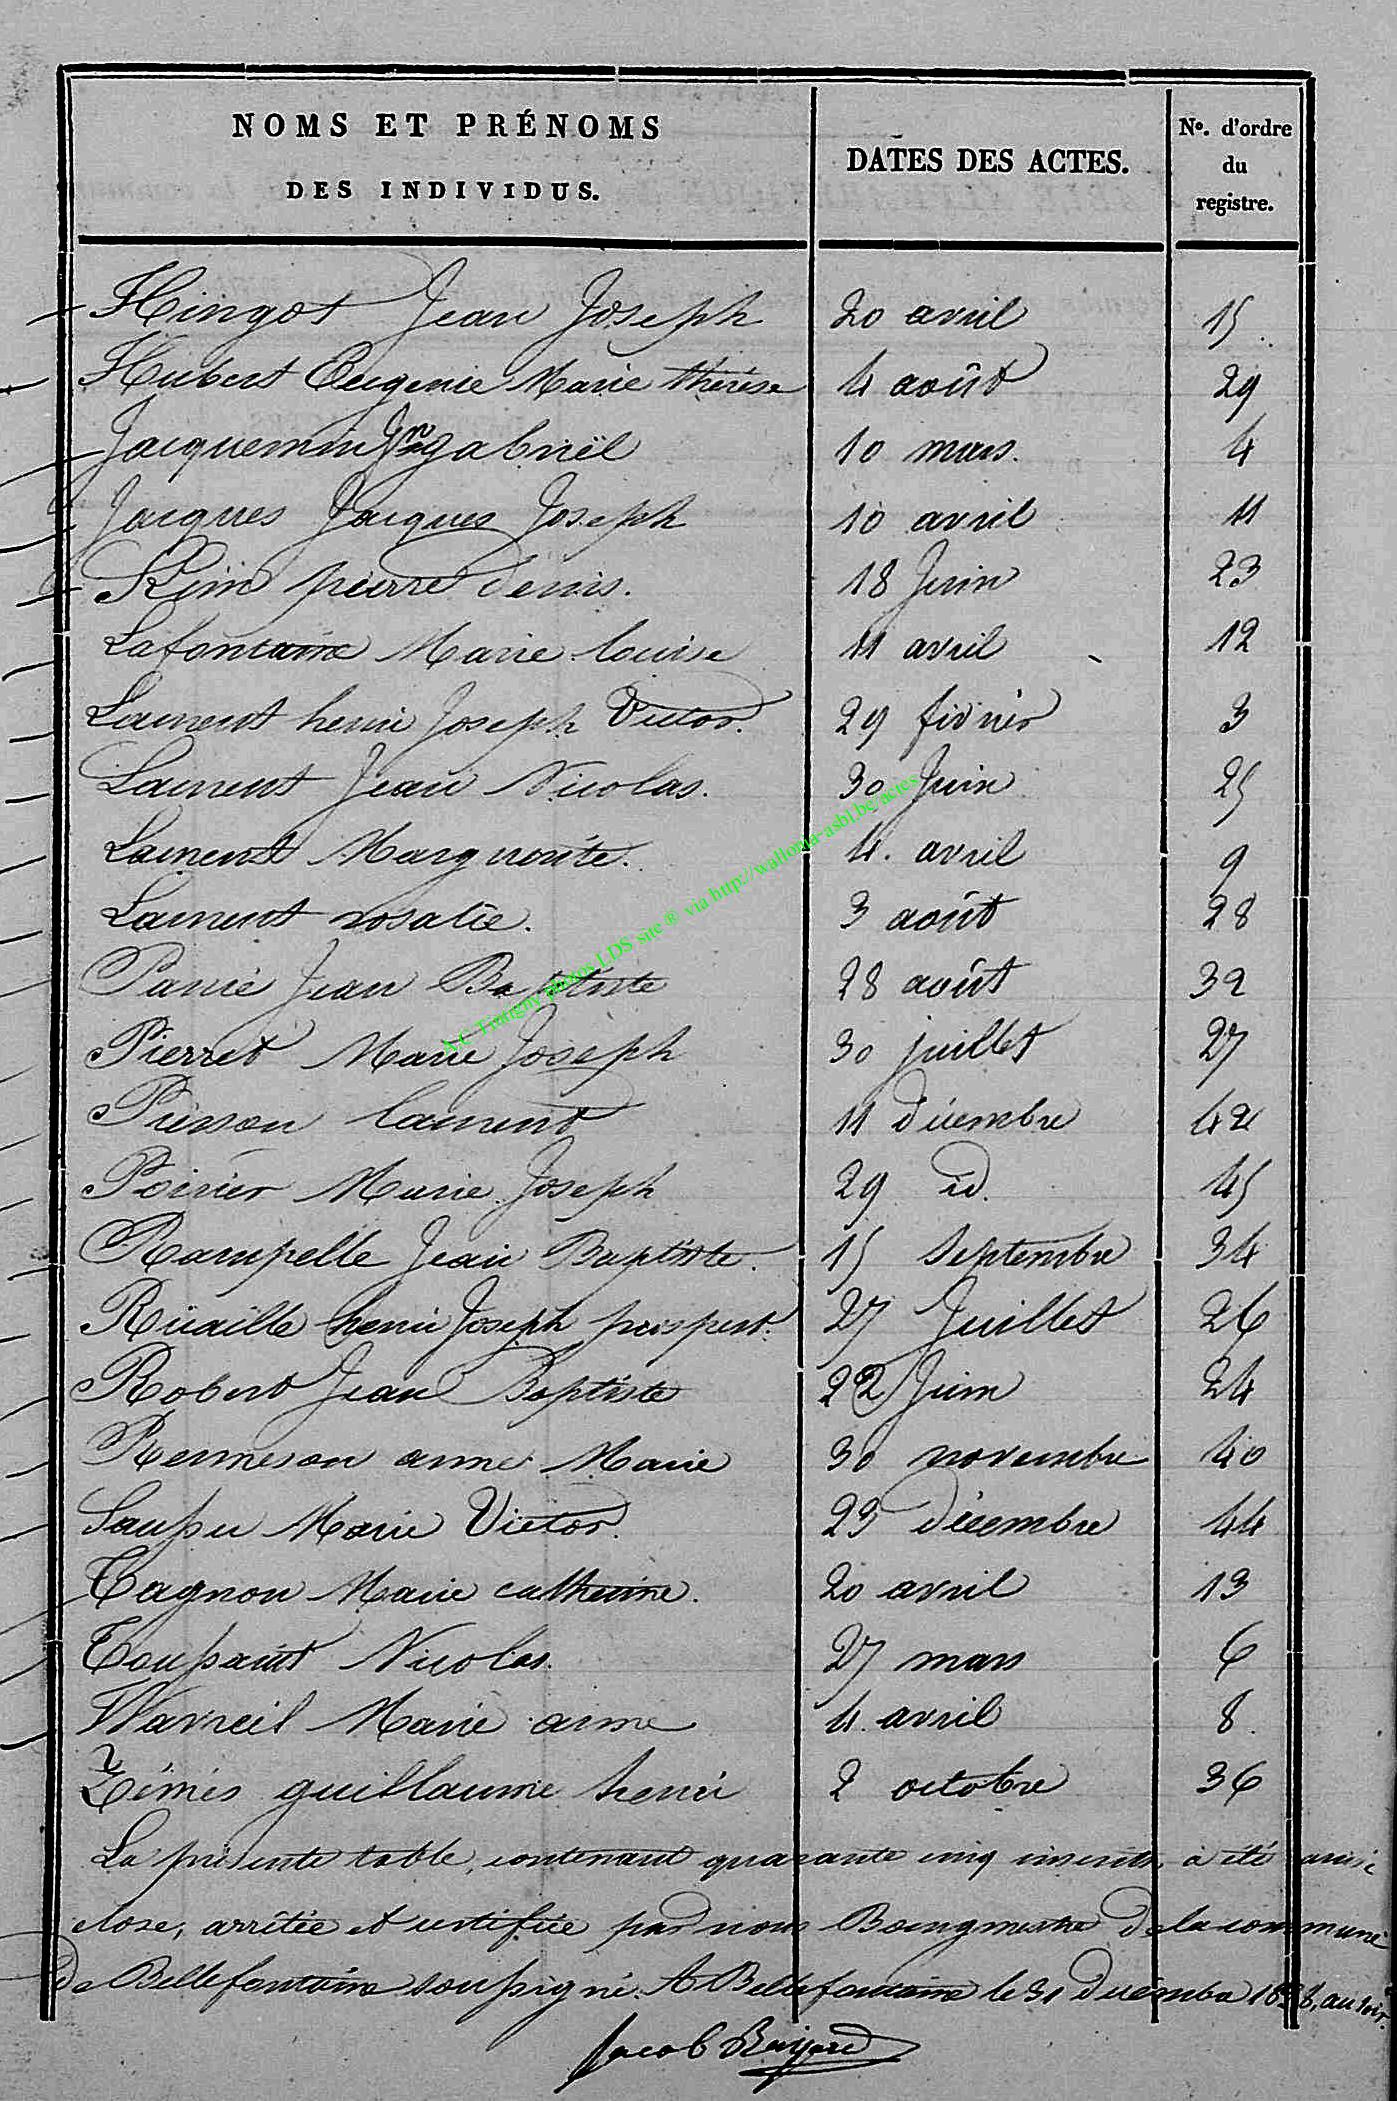 NOMS ET PRÉNOMS
DES INDIVIDUS.
DATES DES ACTES.
No. d'ordre
du
registre.
Hingot Jean Joseph 20 avril 15
Hubert Eugenie Marie thérèse 4 août 29
Jacquemin Jn gabriël 10 mars. 4
Jacques Jacques Joseph 10 avril 11
Kim pierre denis. 18 Juin 23
Lafontaine Marie louise 11 avril 12
Laurent henri Joseph Victor. 29 février 3
Laurent Jean Nicolas. 30 Juin 25
Laurent Margueritte. 4. avril 9
Laurent rosalie. 3 août 28
Jean Baptiste 28 août 32
Pierret Marie Joseph 30 juillet 27
laurent 11 décembre 42
Poirier Marie Joseph 29 id. 45
Rampelle Jean Baptiste. 15 Septembre 34
henri Joseph prospert. 27 Juillet 26
Robert Jean Baptiste 22 Juin 24
anne Marie 30 novembre 40
Saupu Marie Victor. 23 décembre 44
Tagnon Marie catherine. 20 avril 13
Toupaint Nicolas. 27 mars 6
Wavreil Marie anne 4. avril 8.
guillaume henri 2 octobre 36
La présente table, contenant quarante cinq inscrits, a été ainsi
close, arrêtée et certifiée par nous Bourgmestre de la commune
de Bellefontaine soupigné. A Bellefontaine le 31 Décembre au soir.
Jacob
A.C Tintigny photos LDS site ® via http://wallonia-asbl.be/actes